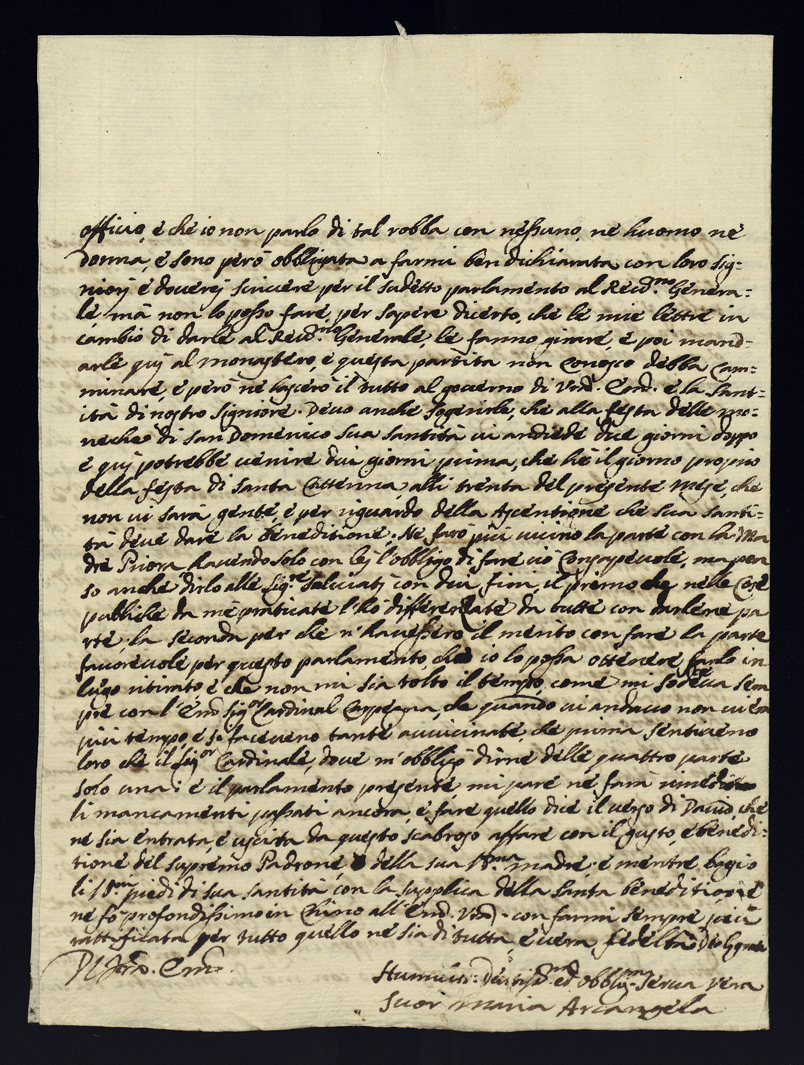 officio, e che io non parlo di tal robba con nessuno, ne huomo ne
donna, e sono però obbligata a farmi ben dichiarata con loro sig-
niorj e doverej scrivere per il sudetto parlamento al Revd.mo Genera-
le mà non lo posso fare, per sapere dicerto, che le mie lettre in
cambio di darle al Revd.mo Generale, le fanno girare, e poi mand-
arle quj al monastero, e questa partita non conosco debba cam-
minare, e però ne lascerò il tutto al governo di Vrd. Emd. e la Sant-
ità di nostro Signiore. Devo anche sogenirle, che alla festa delle mo-
neche di san Domenico sua santità vi andiede dice giorni doppo
e quj potrebbe venire dui giorni prima, che hè il giorno proprio
della festa di santa Catterina, alli trenta del presente mese, che
non vi sarà gente, e per riguardo della Ascentione che sua santi-
tà deve dare la beneditione. Ne farò più vicino la parte con la Ma
dre Priora havendo solo con lej l'obbligo di fare ciò consapevole, ma pen
so anche dirlo alle Sig.re Salviatj con dui fini, il premo che nelle cose
publiche da me praticate l'hò differenziate da tutte con darlene pa
rte, la seconda per che n'havessero il merito con fare la parte
favorevole per questo parlamento, che io lo possa ottenere farlo in
lugo ritirato e che non mi sia tolto il tempo, come mi sodeva sem
pre con l'Emo Sig.or Cardinal Carpegna, che quando vi andavo non vi era
più tempo e si facevano tante avvicinate che prima sentivano
loro che il Sig.or Cardinale, dove m'obbligò dirne delle quattro parte
solo una: e il parlamento presente mi pare ne farà
li mancamenti passati ancora, e fare quello dice il verso di David, che
ne sia entrata, e uscita da questo scabroso affare con il gusto, e benedi-
tione del supremo Padrone e della sua SS.ma madre, e mentre bagio
li SS.mi piedi di sua santità, con la supplica della santa beneditione
ne fo profondissimo inchino all'Emd. Vrd. con farmi sempre più
rattificata per tutto quello ne sia di tutta, e vera fedeltà
Di Emo.
Humiliss. Devtiss.ma ed obblig.ma serva vera
Suor Maria Arcangela